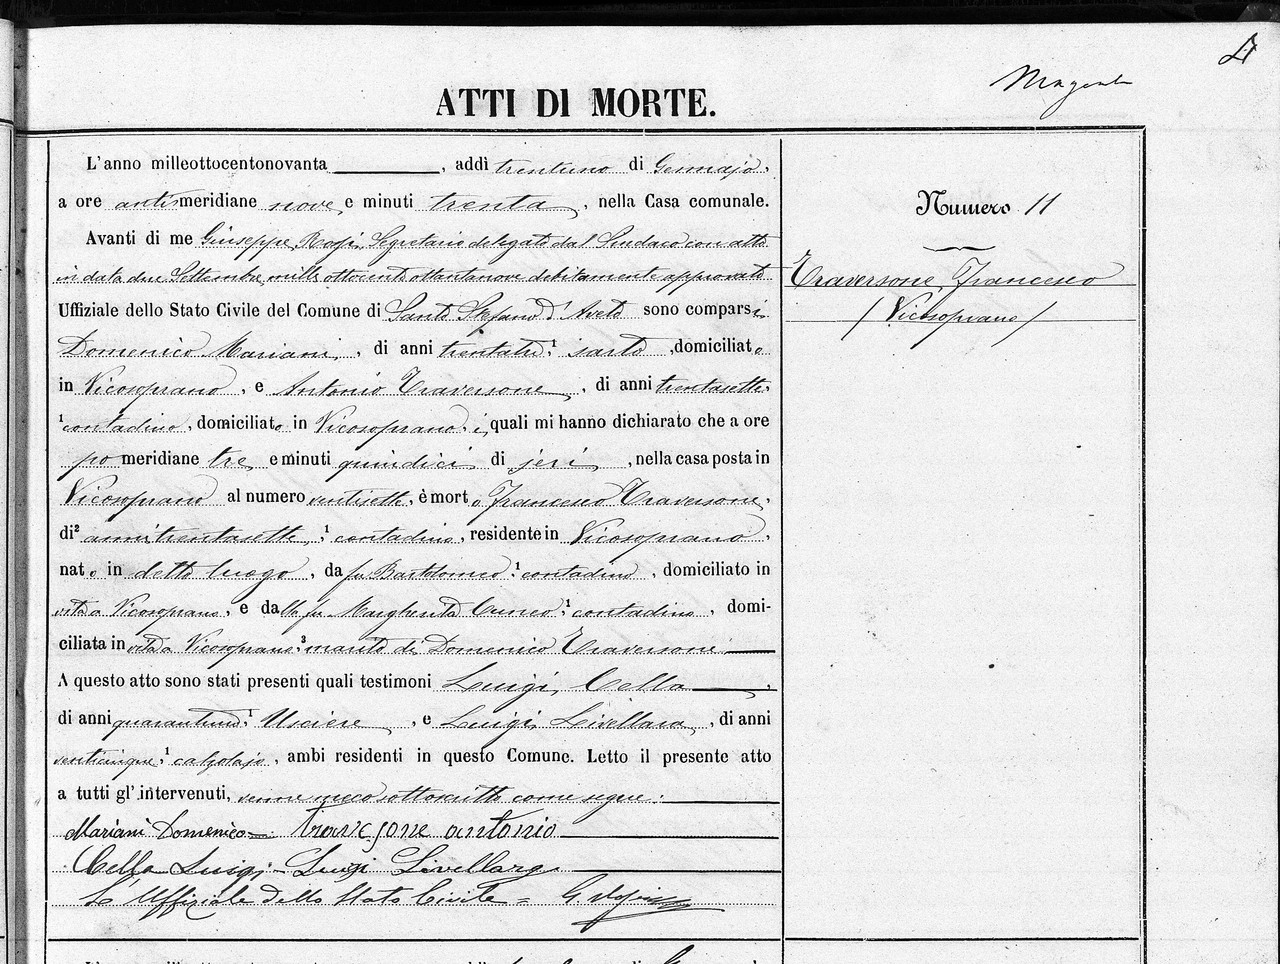 ATTI DI MORTE.
L'anno milleottocentonovanta, addì trentuno di Gennajo,
a ore antimeridiane nove e minuti trenta, nella Casa comunale.
Avanti di me Giuseppe Segretario delegato dal Sindaco con atto
in data due Settembre mille ottocento ottantanove debitamente approvato
Uffiziale dello Stato Civile del Comune di Santo Stefano d'Aveto sono comparsi
Domenico Mariani, di anni trentatre, ¹ sarto, domiciliato
in Vicosoprano, e Antonio Traversone, di anni trentasette,
¹ contadino, domiciliato in Vicosoprano, i quali mi hanno dichiarato che a ore
pomeridiane tre e minuti quindici di jeri, nella casa posta in
Vicosoprano al numero ventisette, è morto Francesco Traversone,
di² anni trentasette, ¹ contadino, residente in Vicosoprano,
nato in detto luogo, da fu Bartolomeo, ¹ contadino, domiciliato in
vita a Vicosoprano, e dalla fu Margherita Cuneo, ¹ contadina, domi-
ciliata in vita a Vicosoprano, ³ marito di Domenico Traversone
A questo atto sono stati presenti quali testimoni Luigi Cella,
di anni quarantuno, ¹ Usciere, e Luigi Livellara, di anni
venticinque, ¹ calzolajo, ambi residenti in questo Comune. Letto il presente atto
a tutti gl'intervenuti, venne meco sottoscritto come segue:
Mariani Domenico - traversone antonio
Cella Luigi - Luigi Livellara
L'Uffiziale dello Stato Civile = G.
Numero 11
Traversone Francesco
/ Vicosoprano /
L'anno milleottocentonovanta